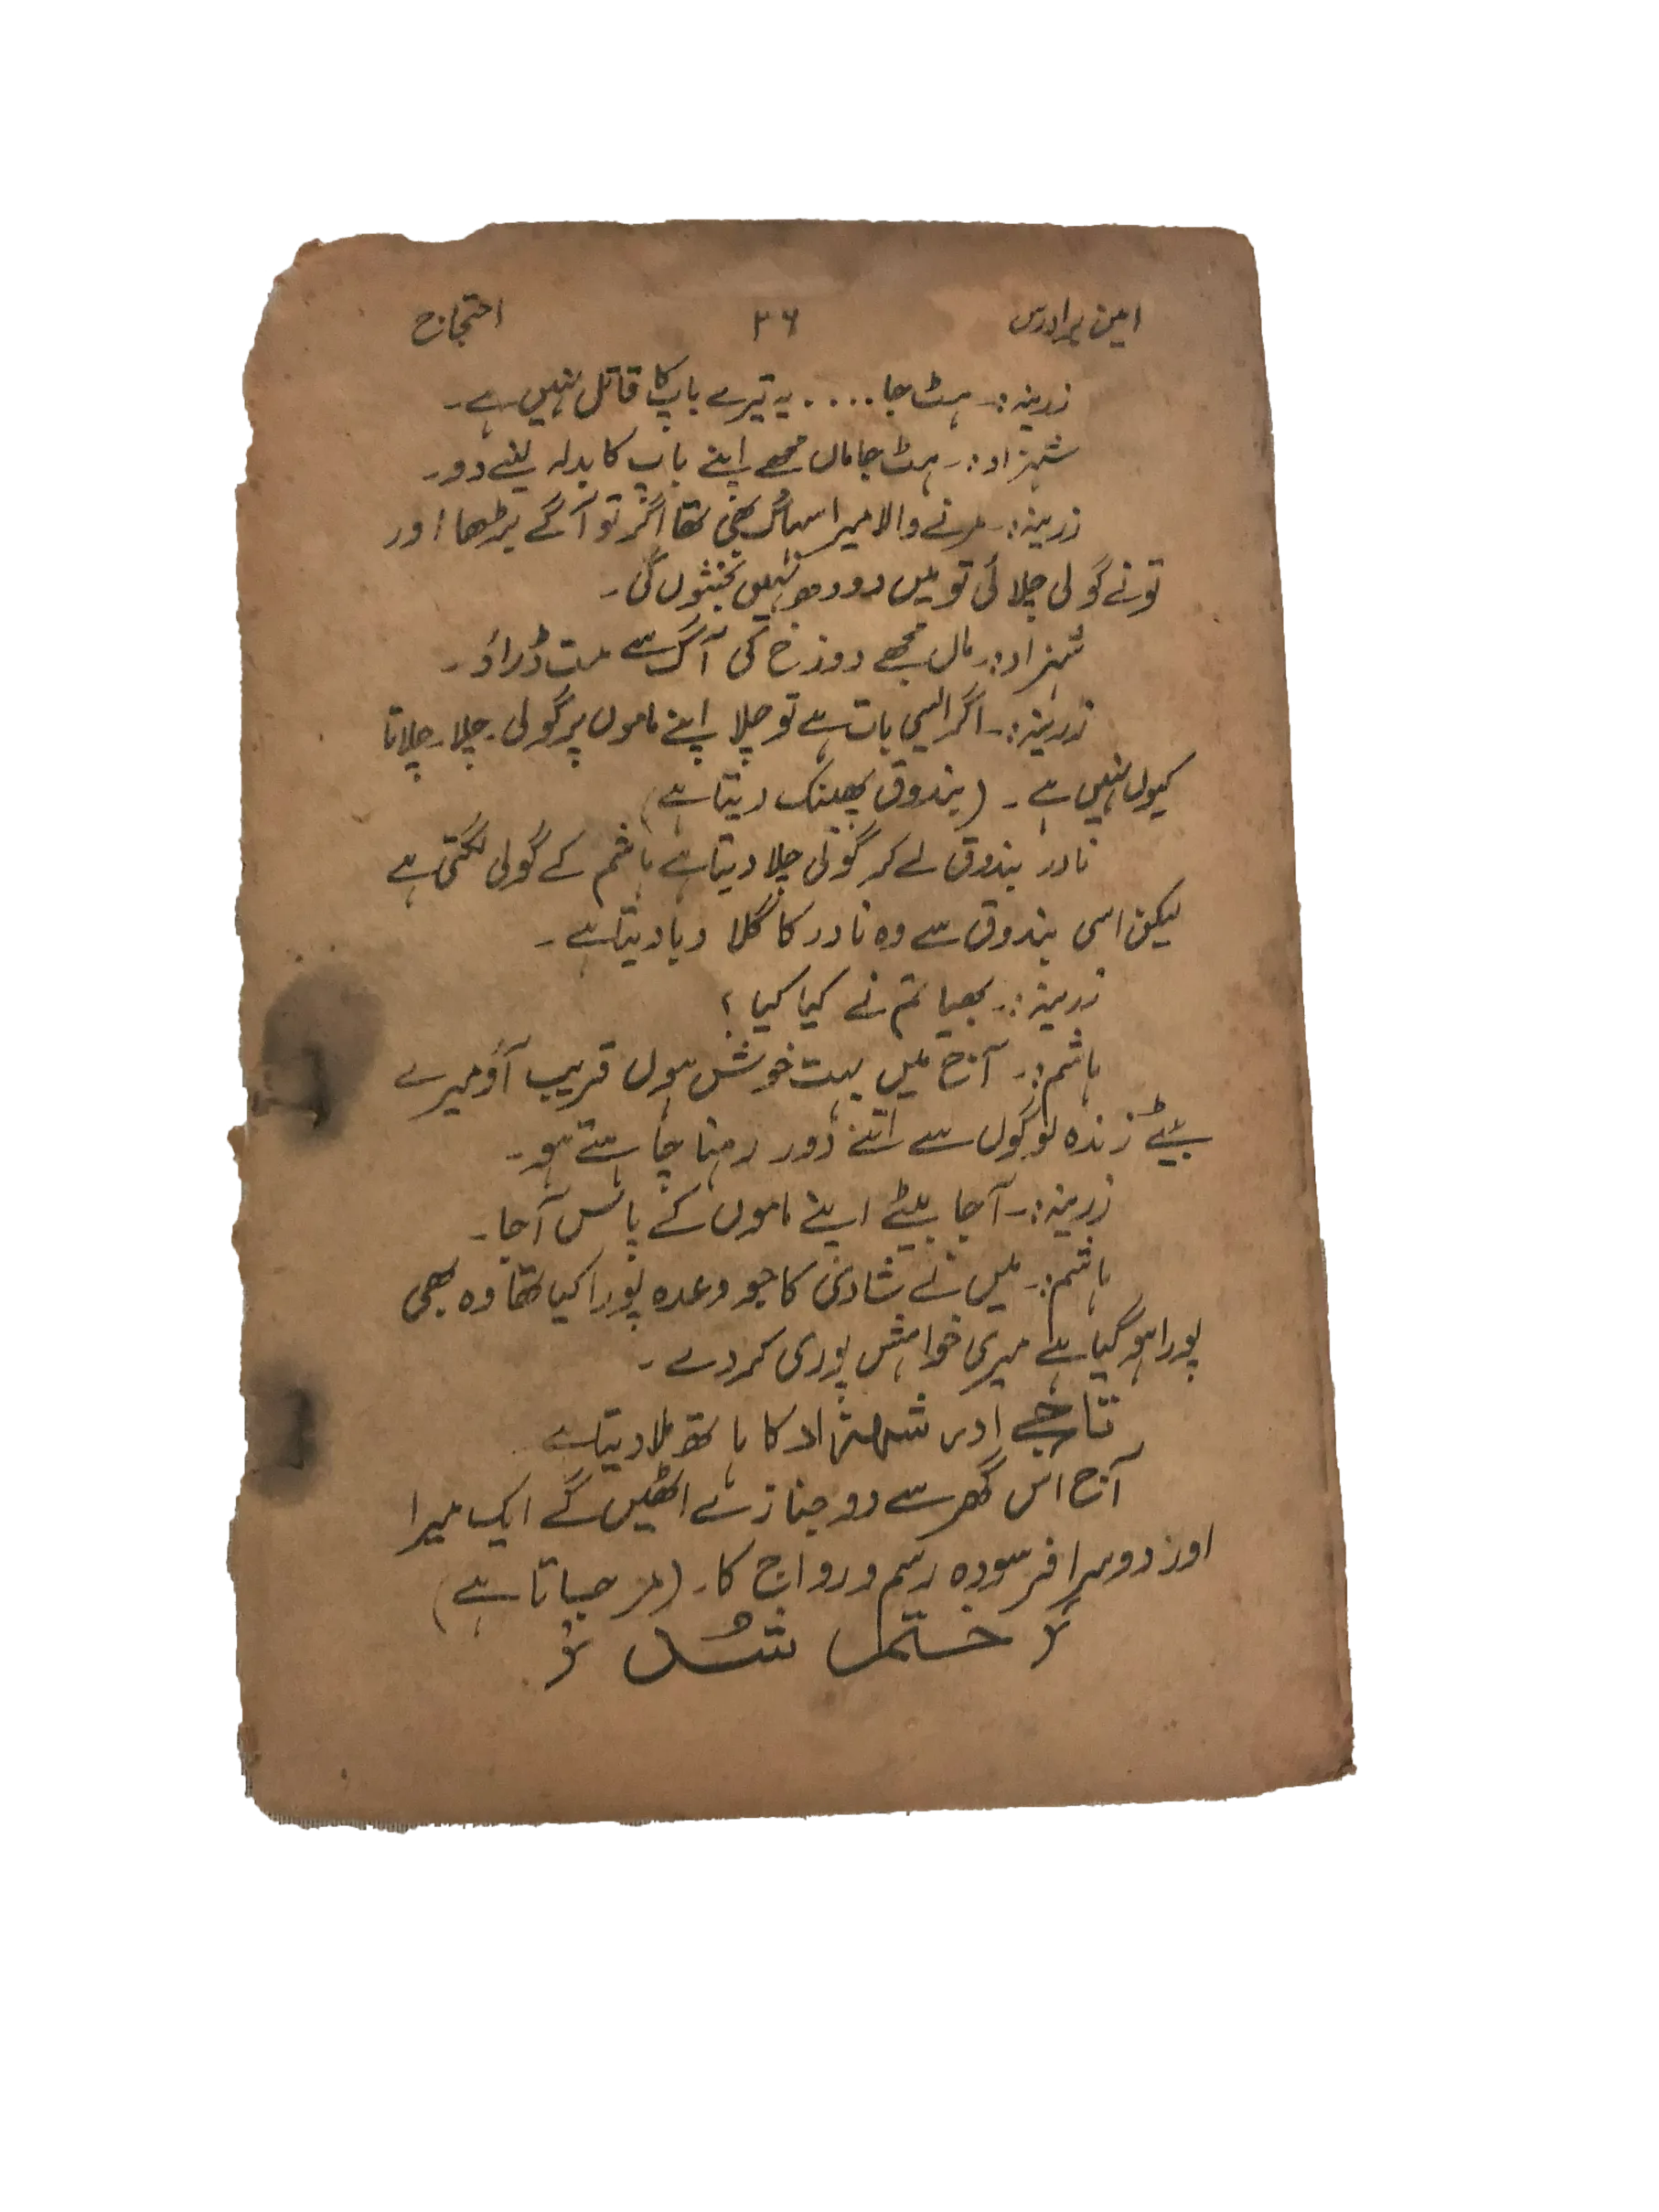 امین برادرس ۳۶ احتجاج
زرینہ:۔ ہٹ جا .... یہ تیرے باپ کا قاتل نہیں ہے۔
شہزاد:۔ ہٹ جا ماں مجھے اپنے باپ کا بدلہ لینے دو۔
زرینہ:۔ مرنے والا میرا سہاگ بھی تھا اگر تو آگے بڑھا اور
تو نے گولی چلائی تو میں دودھ نہیں بخشوں گی۔
شہزاد:۔ ماں مجھے دوزخ کی آگ سے مت ڈراؤ۔
زرینہ:۔ اگر ایسی بات ہے تو چلا اپنے ماموں پر گولی۔ چلا۔ چلاتا
کیوں نہیں ہے۔ (بندوق پھینک دیتا ہے)
نادر بندوق لے کر گولی چلا دیتا ہے ہاشم کے گولی لگتی ہے
لیکن اسی بندوق سے وہ نادر کا گلا دبا دیتا ہے۔
زرینہ:۔ بھیا تم نے کیا کیا؟
ہاشم:۔ آج میں بہت خوش ہوں قریب آؤ میرے
بیٹے زندہ لوگوں سے اتنے دور رہنا چاہتے ہو۔
زرینہ:۔ آجا بیٹے اپنے ماموں کے پاس آجا۔
ہاشم:۔ میں نے شادی کا جو وعدہ پورا کیا تھا وہ بھی
پورا ہو گیا ہے میری خواہش پوری کر دے۔
تاجے اور شہزاد کا ہاتھ ملا دیتا ہے
آج اس گھر سے دو جنازے اٹھیں گے ایک میرا
اور دوسرا فرسودہ رسم و رواج کا۔ (مر جاتا ہے)
ختم شُد